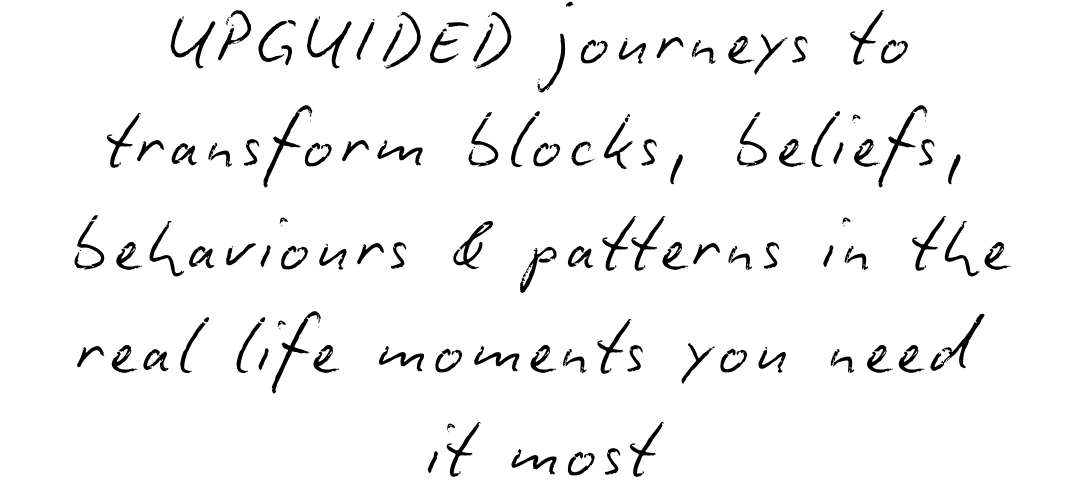 UPGUIDED journeys to
transform blocks, beliefs,
behaviours & patterns in the
real life moments you need
it most